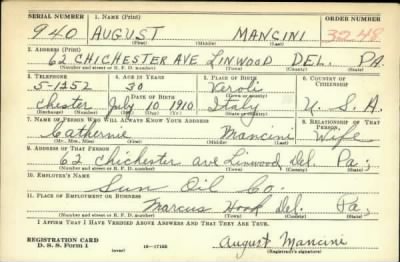 SERIAL NUMBER 1. NAME (Print) ORDER NUMBER
940 AUGUST MANCINI 3248
(First) (Middle) (Last)
2. ADDRESS (Print)
62 CHICHESTER AVE LINWOOD DEL. PA.
(Number and street or R. F. D. number) (Town) (County) (State)
3. TELEPHONE 4. AGE IN YEARS 5. PLACE OF BIRTH 6. COUNTRY OF CITIZENSHIP
5-1252 30 Veroli
DATE OF BIRTH (Town or county)
Chester July 10 1910 Italy U.S.A.
(Exchange) (Number) (Mo.) (Day) (Yr.) (State or country)
7. NAME OF PERSON WHO WILL ALWAYS KNOW YOUR ADDRESS 8. RELATIONSHIP OF THAT PERSON
Catherine Mancini Wife
(Mr., Mrs., Miss) (First) (Middle) (Last)
9. ADDRESS OF THAT PERSON
62 Chichester ave Linwood Del. Pa;
(Number and street or R. F. D. number) (Town) (County) (State)
10. EMPLOYER'S NAME
Sun Oil Co.
11. PLACE OF EMPLOYMENT OR BUSINESS
Marcus Hook Del. Pa;
(Number and street or R. F. D. number) (Town) (County) (State)
I AFFIRM THAT I HAVE VERIFIED ABOVE ANSWERS AND THAT THEY ARE TRUE.
REGISTRATION CARD
D. S. S. Form 1 (over) 16-17105 August Mancini
(Registrant's signature)